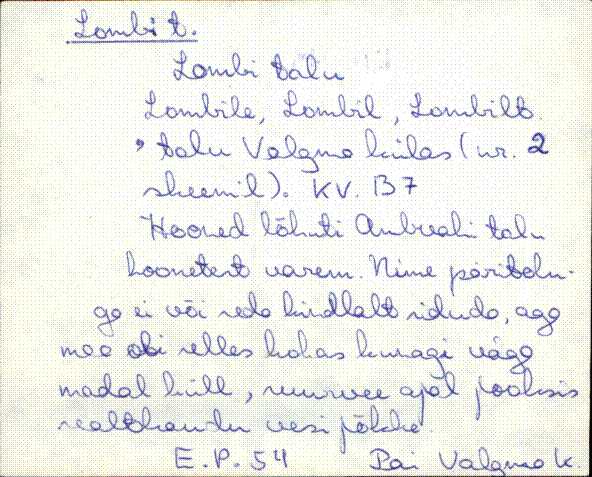 Lombi t.
Lombi talu
Lombile, Lombil, Lombilt.
, talu Valgma külas (nr. 2
skeemil). KV. B7
Hooned lõhuti talu
hoonetest varem. Nime päritolu-
ga ei või seda kindlalt siduda, aga
maa oli selles kohas kunagi väga
madal küll, suurvee ajal jooksis
sealtkaudu vesi jõkke.
E.P. 54 Pai Valgma k.